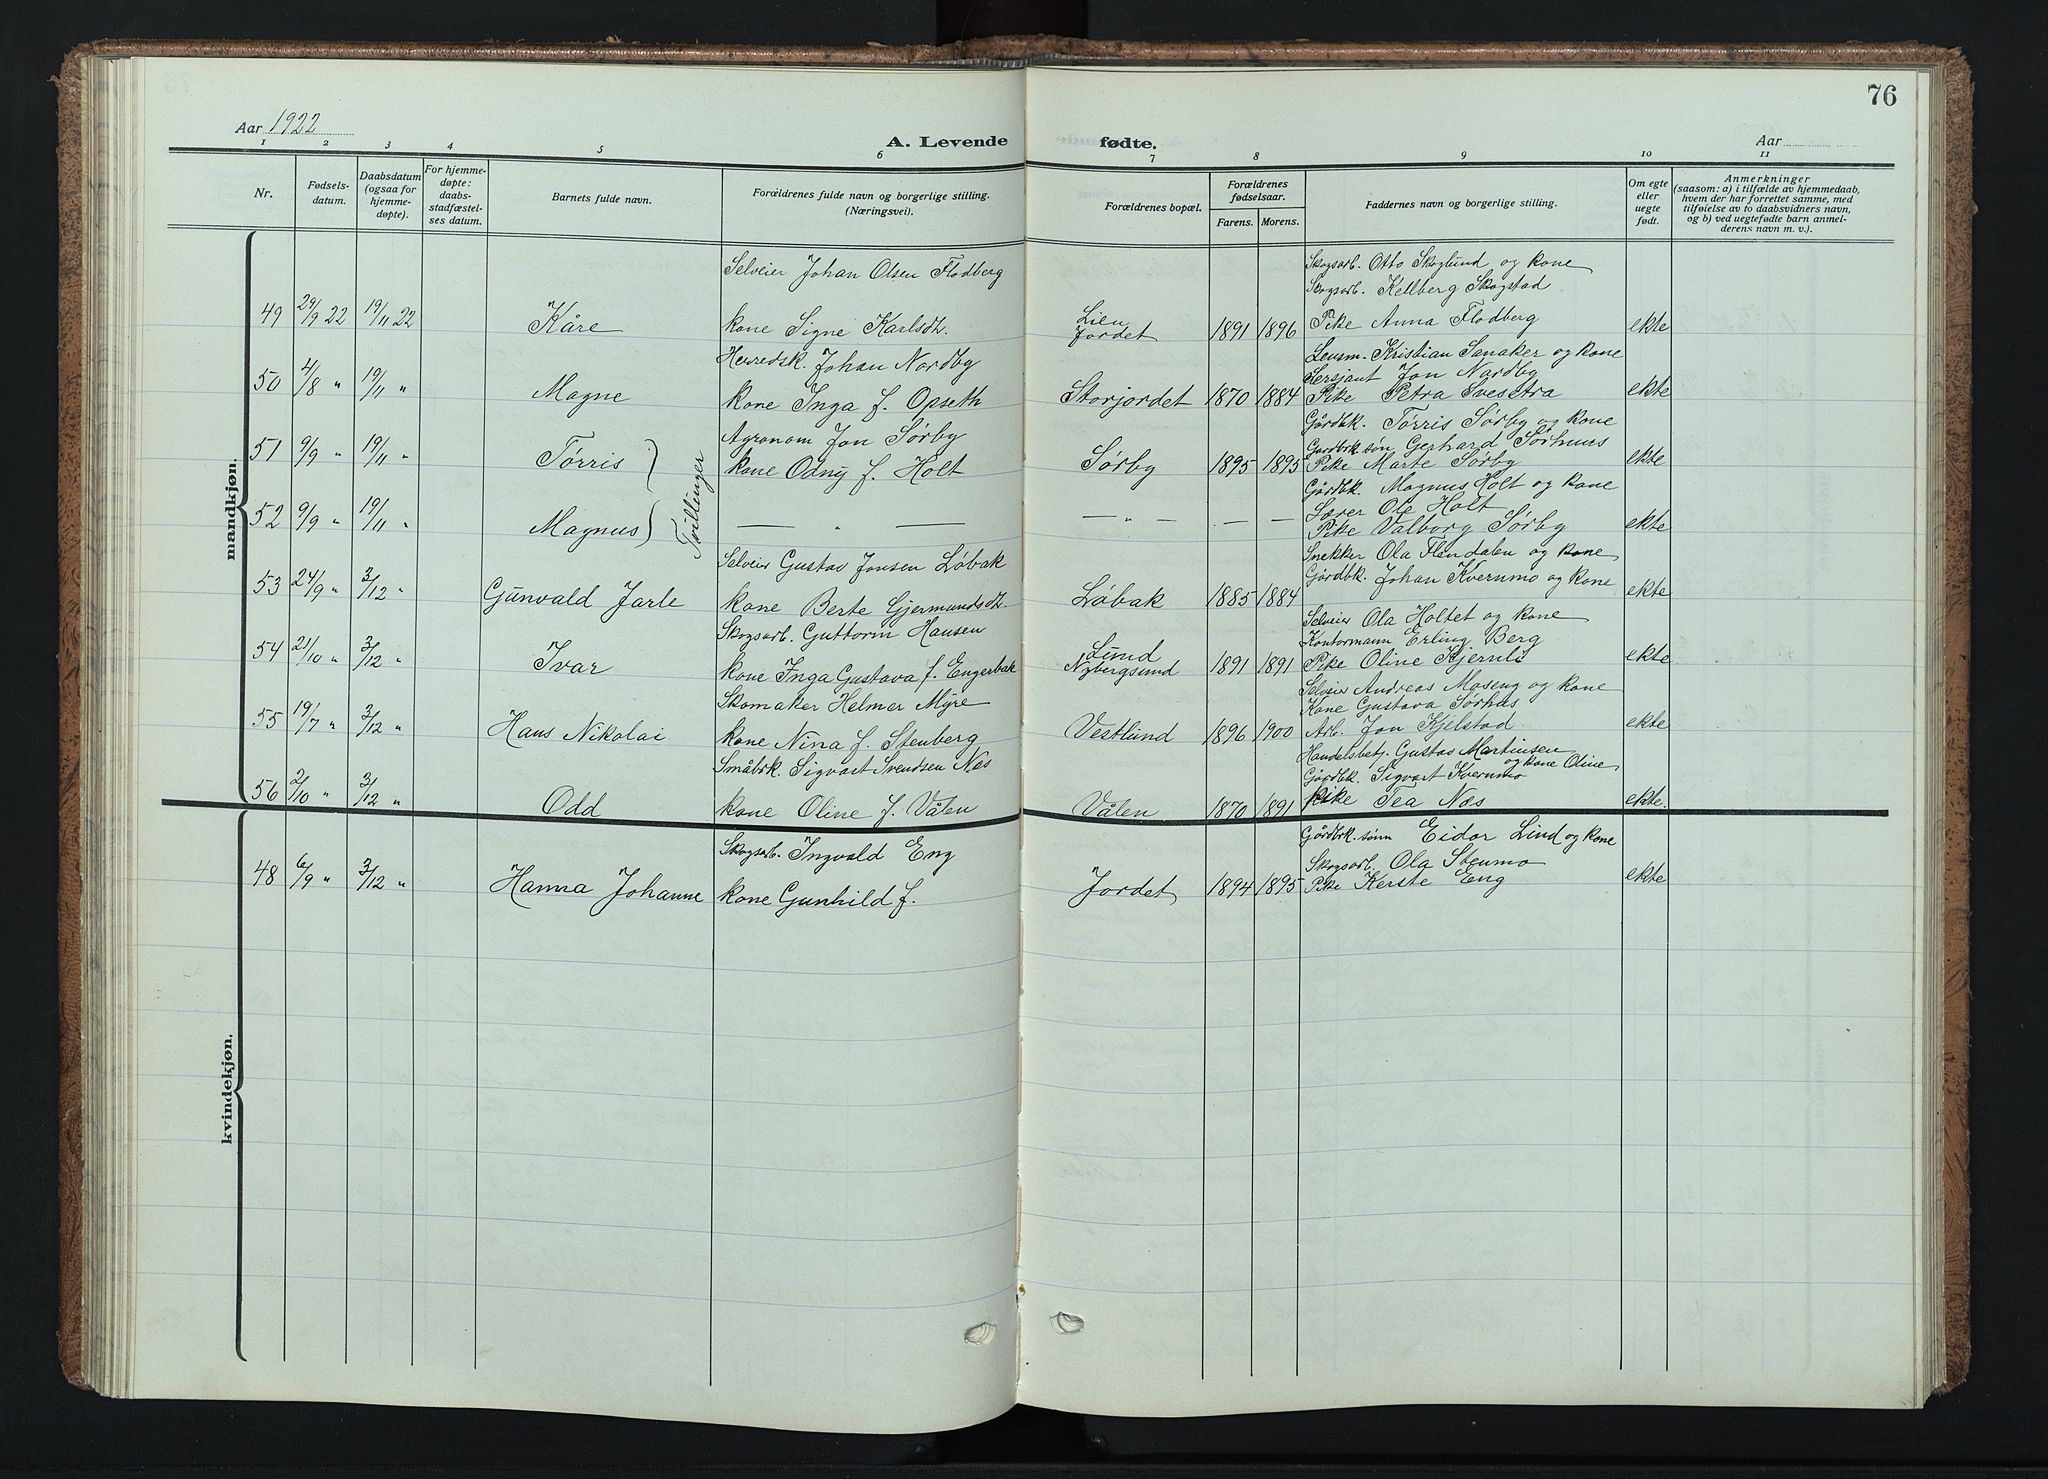 76
Aar 1922
A. Levende fødte.
Aar
1 2 3 4 5 6 7 8 9 10 11
Nr. Fødsels-datum. Daabsdatum (ogsaa for hjemme-døpte). For hjemme-døpte: daabs-stadfæstel-ses datum. Barnets fulde navn. Forældrenes fulde navn og borgerlige stilling. (Næringsvei). Forældrenes bopæl. Forældrenes fødselsaar. Farens. Morens. Faddernes navn og borgerlige stilling. Om egte eller uegte født. Anmerkninger (saasom: a) i tilfælde av hjemmedaab, hvem der har forrettet samme, med tilføielse av to daabsvidners navn, og b) ved uegtefødte barn anmel-derens navn m. v.).
mandkjøn.
Selveier Johan Olsen Flodberg
Skogsarb. Otto Skoglund og kone
Skogsarb. Kellberg Skogstad
49 29/9 22 19/11 22 Kåre kone Signe Karlsdt. Lien Jordet 1891 1896 Pike Anna Flodberg ekte
Herredsk. Johan Nordby
Lensm. Kristian Sanaker og kone
Sersjant Jon Nordby
50 4/8 " 19/11 " Magne kone Inga f. Opseth Storjordet 1870 1884 Pike Petra Svesetra ekte
Agronom Jon Sørby
Gårdbk. Tørris Sørby og kone
Gardbrk. søn Gerhard Sørhuus
51 9/9 " 19/11 " Tørris ) kone Odny f. Holt Sørby 1895 1895 Pike Marte Sørby ekte
Tvillinger
Gårdbk. Magnus Holt og kone
Lærer Ole Holt
52 9/9 " 19/11 " Magnus ) — " — — " — — — Pike Valborg Sørby ekte
Selveier Gustav Jonsen Løbak
Snekker Ola Flendalen og kone
Gårdbk. Johan Kvernmo og kone
53 24/9 " 3/12 " Gunvald Jarle kone Berte Gjermundsdt. Løbak 1885 1884 ekte
Skogsarb. Guttorm Hansen
Selveier Ola Holtet og kone
Kontormann Erling Berg
54 21/10 " 3/12 " Ivar kone Inga Gustava f. Engerbak Lund Nybergsund 1891 1891 Pike Oline Kjernli ekte
Skomaker Helmer Myre
Selveier Andreas Moseng og kone
Kone Gustava Sørhus
55 19/7 " 3/12 " Hans Nikolai kone Nina f. Stenberg Vestlund 1896 1900 Arb. Jon Kjelstad ekte
Småbrk. Sigvart Svendsen Næs
Handelsbetj. Gustav Martinsen og kone Oline,
Gårdbk. Sigvart Kvernmo
56 2/10 " 3/12 " Odd kone Oline f. Vålen Vålen 1870 1891 Pike Tea Næs ekte.
kvindekjøn.
Skogsarb. Ingvald Eng
Gårdbrk. sønn Eidar Lind og kone
Skogsarb. Ola Stenmo
48 6/9 " 3/12 " Hanna Johanne kone Gunhild f. Jordet 1894 1895 Pike Kerste Eng ekte